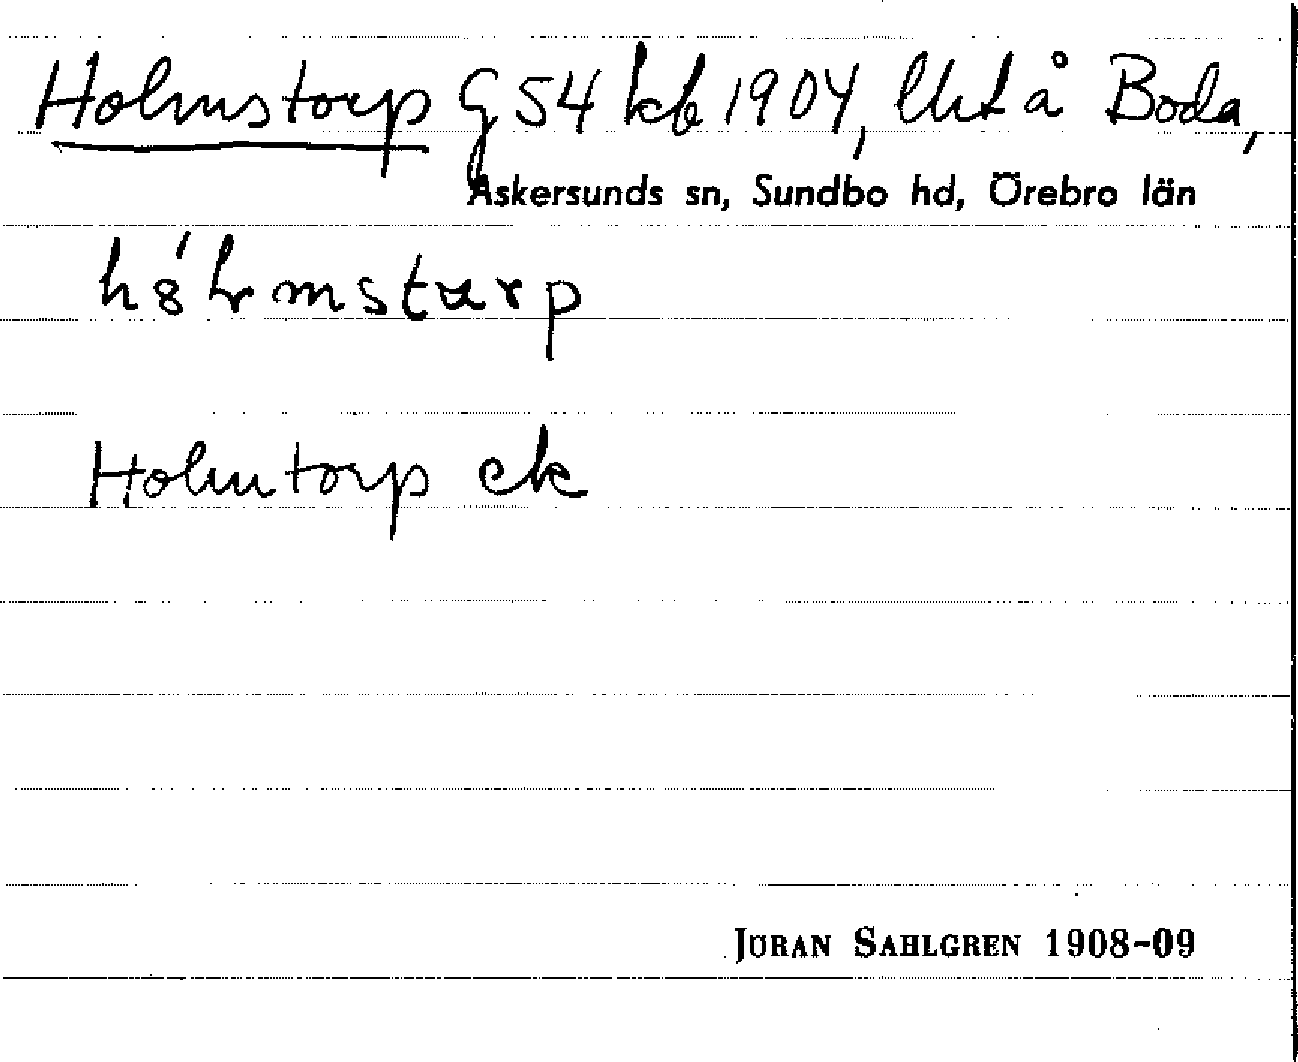 Holmstorp G 54 kb 1904, Utå Boda,
Askersunds sn, Sundbo hd, Örebro län
Holmtorp ek
JÖRAN SAHLGREN 1908-09